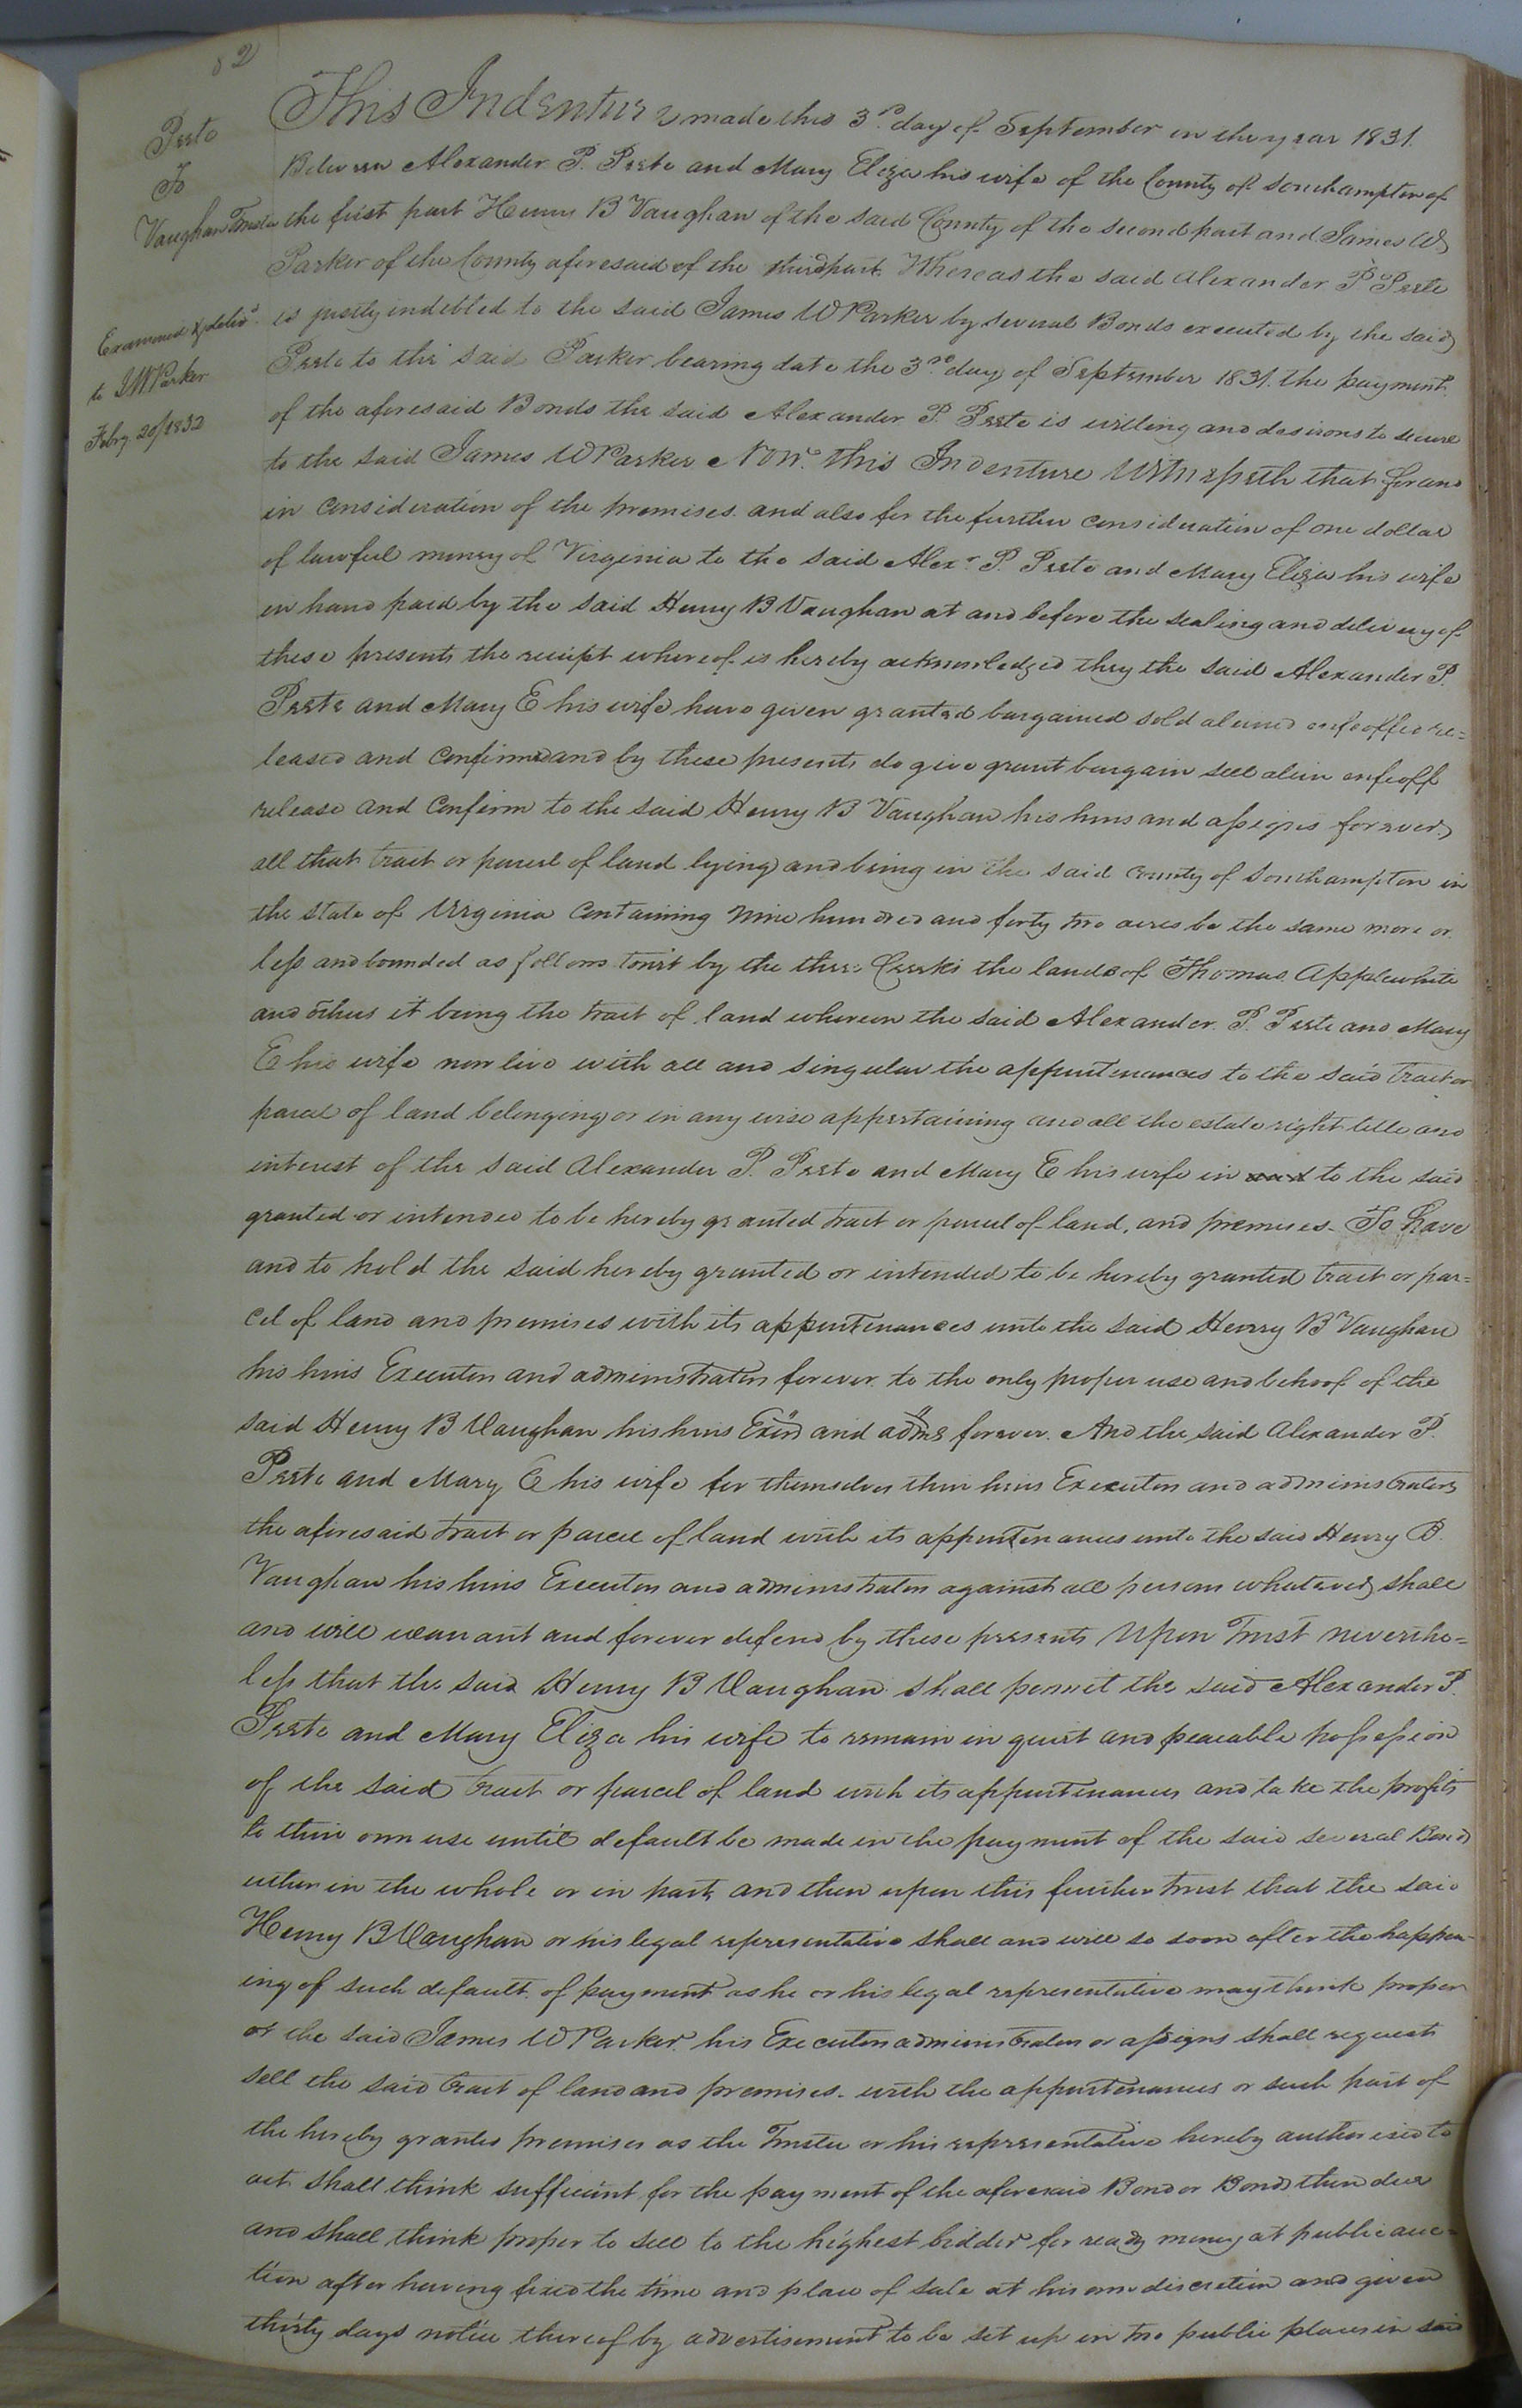 82
Peete
To
Vaughan Trustee
Examined & deliv'd
to J W Parker
Febry. 20/1832
This Indenture made this 3rd day of September in the year 1831.
Between Alexander P. Peete and Mary Eliza his wife of the County of Southampton of
the first part Henry B Vaughan of the said County of the second part and James W
Parker of the County aforesaid of the third part. Whereas the said Alexander P. Peete
is justly indebted to the said James W Parker by several Bonds executed by the said
Peete to the said Parker bearing date the 3rd day of September 1831. the payment
of the aforesaid Bonds the said Alexander P. Peete is willing and desirous to secure
to the said James W Parker Now. this Indenture Witnesseth that for and
in Consideration of the premises. and also for the further consideration of one dollar
of lawful money of Virginia to the said Alexr. P. Peete and Mary Eliza his wife
in hand paid by the said Henry B Vaughan at and before the sealing and delivery of
these presents the receipt whereof is hereby acknowledged they the said Alexander P.
Peete and Mary E his wife have given granted bargained sold aliened enfeoffed re=
leased and Confirmed and by these presents do give grant bargain sell alien enfeoff
release and Confirm to the said Henry B Vaughan his heirs and assigns forever,
all that tract or parcel of land lying and being in the said County of Southampton in
the State of Virginia Containing Nine hundred and forty two acres be the same more or
less and bounded as follows towit by the three Creeks the lands of Thomas Applewhite
and others it being the tract of land whereon the said Alexander P. Peete and Mary
E his wife now live with all and singular the appurtenances to the said tract or
parcel of land belonging or in any wise appertaining and all the estate right title and
interest of the said Alexander P. Peete and Mary E his wife in and to the said
granted or intended to be hereby granted tract or parcel of land, and premises. To have
and to hold the said hereby granted or intended to be hereby granted tract or par=
cel of land and premises with its appurtenances unto the said Henry B Vaughan
his heirs Executors and administrators forever. to the only proper use and behoof of the
said Henry B Vaughan his heirs Exors and adms forever. And the said Alexander P.
Peete and Mary E his wife for themselves their heirs Executors and administrators
the aforesaid tract or parcel of land with its appurtenances unto the said Henry B.
Vaughan his heirs Executors and administrators against all persons whatever, shall
and will warrant and forever defend by these presents Upon Trust neverthe=
less that the said Henry B Vaughan shall permit the said Alexander P.
Peete and Mary Eliza his wife to remain in quiet and peacable possession
of the said tract or parcel of land with its appurtenances and take the profits
to their own use until default be made in the payment of the said several Bonds
either in the whole or in part, and then upon this further trust that the said
Henry B Vaughan or his legal representative shall and will so soon after the happen-
ing of such default of payment as he or his legal representative may think proper
or the said James W Parker his Executors administrators or assigns shall request
sell the said tract of land and premises. with the appurtenances or such part of
the hereby granted premises as the Trustee or his representative hereby authorised to
act shall think sufficient for the payment of the aforesaid Bond or Bonds then due
and shall think proper to sell to the highest bidder for ready money at public auc=
tion after having fixed the time and place of sale at his own discretion and given
thirty days notice thereof by advertisement to be set up in two public places in said